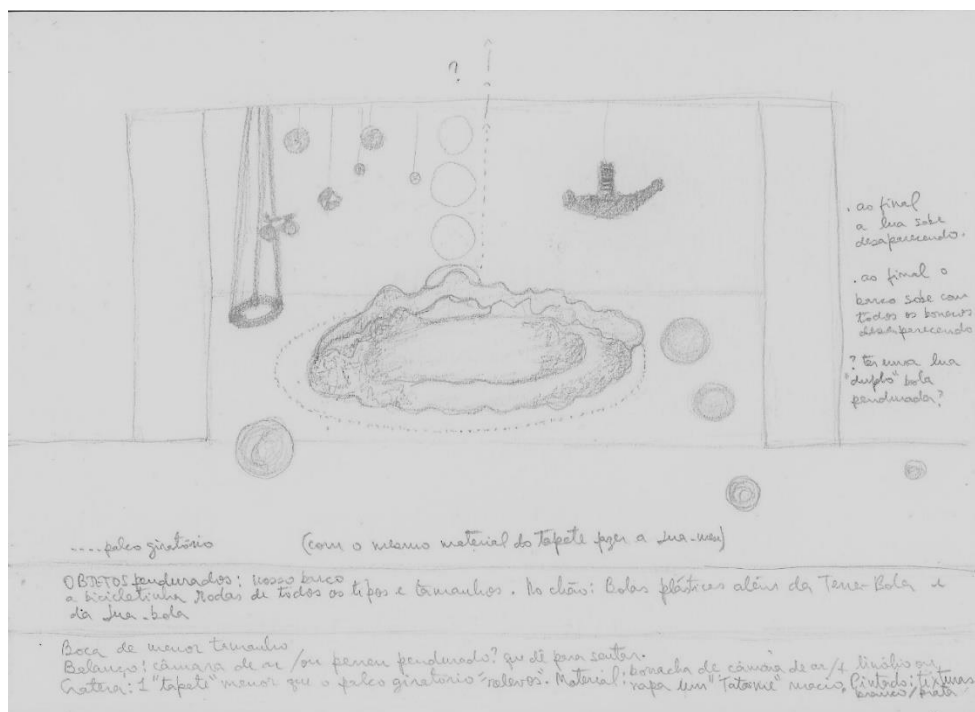 ?
. ao final
a lua sobe
desaparecendo.
. ao final o
barco sobe com
todos os bonecos
desaparecendo
? ter uma lua
"duplo" bola
pendurada?
....palco giratório (com o mesmo material do tapete fazer a Lua-men)
OBJETOS pendurados: nosso barco
a bicicletinha Rodas de todos os tipos e tamanhos. No chão: Bolas plásticas além da Terra-Bola e
da Lua-bola
Boca de menor tamanho
Balanço: câmara de ar /ou pneu pendurado? que dê para sentar.
Cratera: 1 "tapete" menor que o palco giratório "relevos". Material: borracha de câmara de ar/+ linólio ou
"Tatame" macio. Pintado: texturas
branco/prata